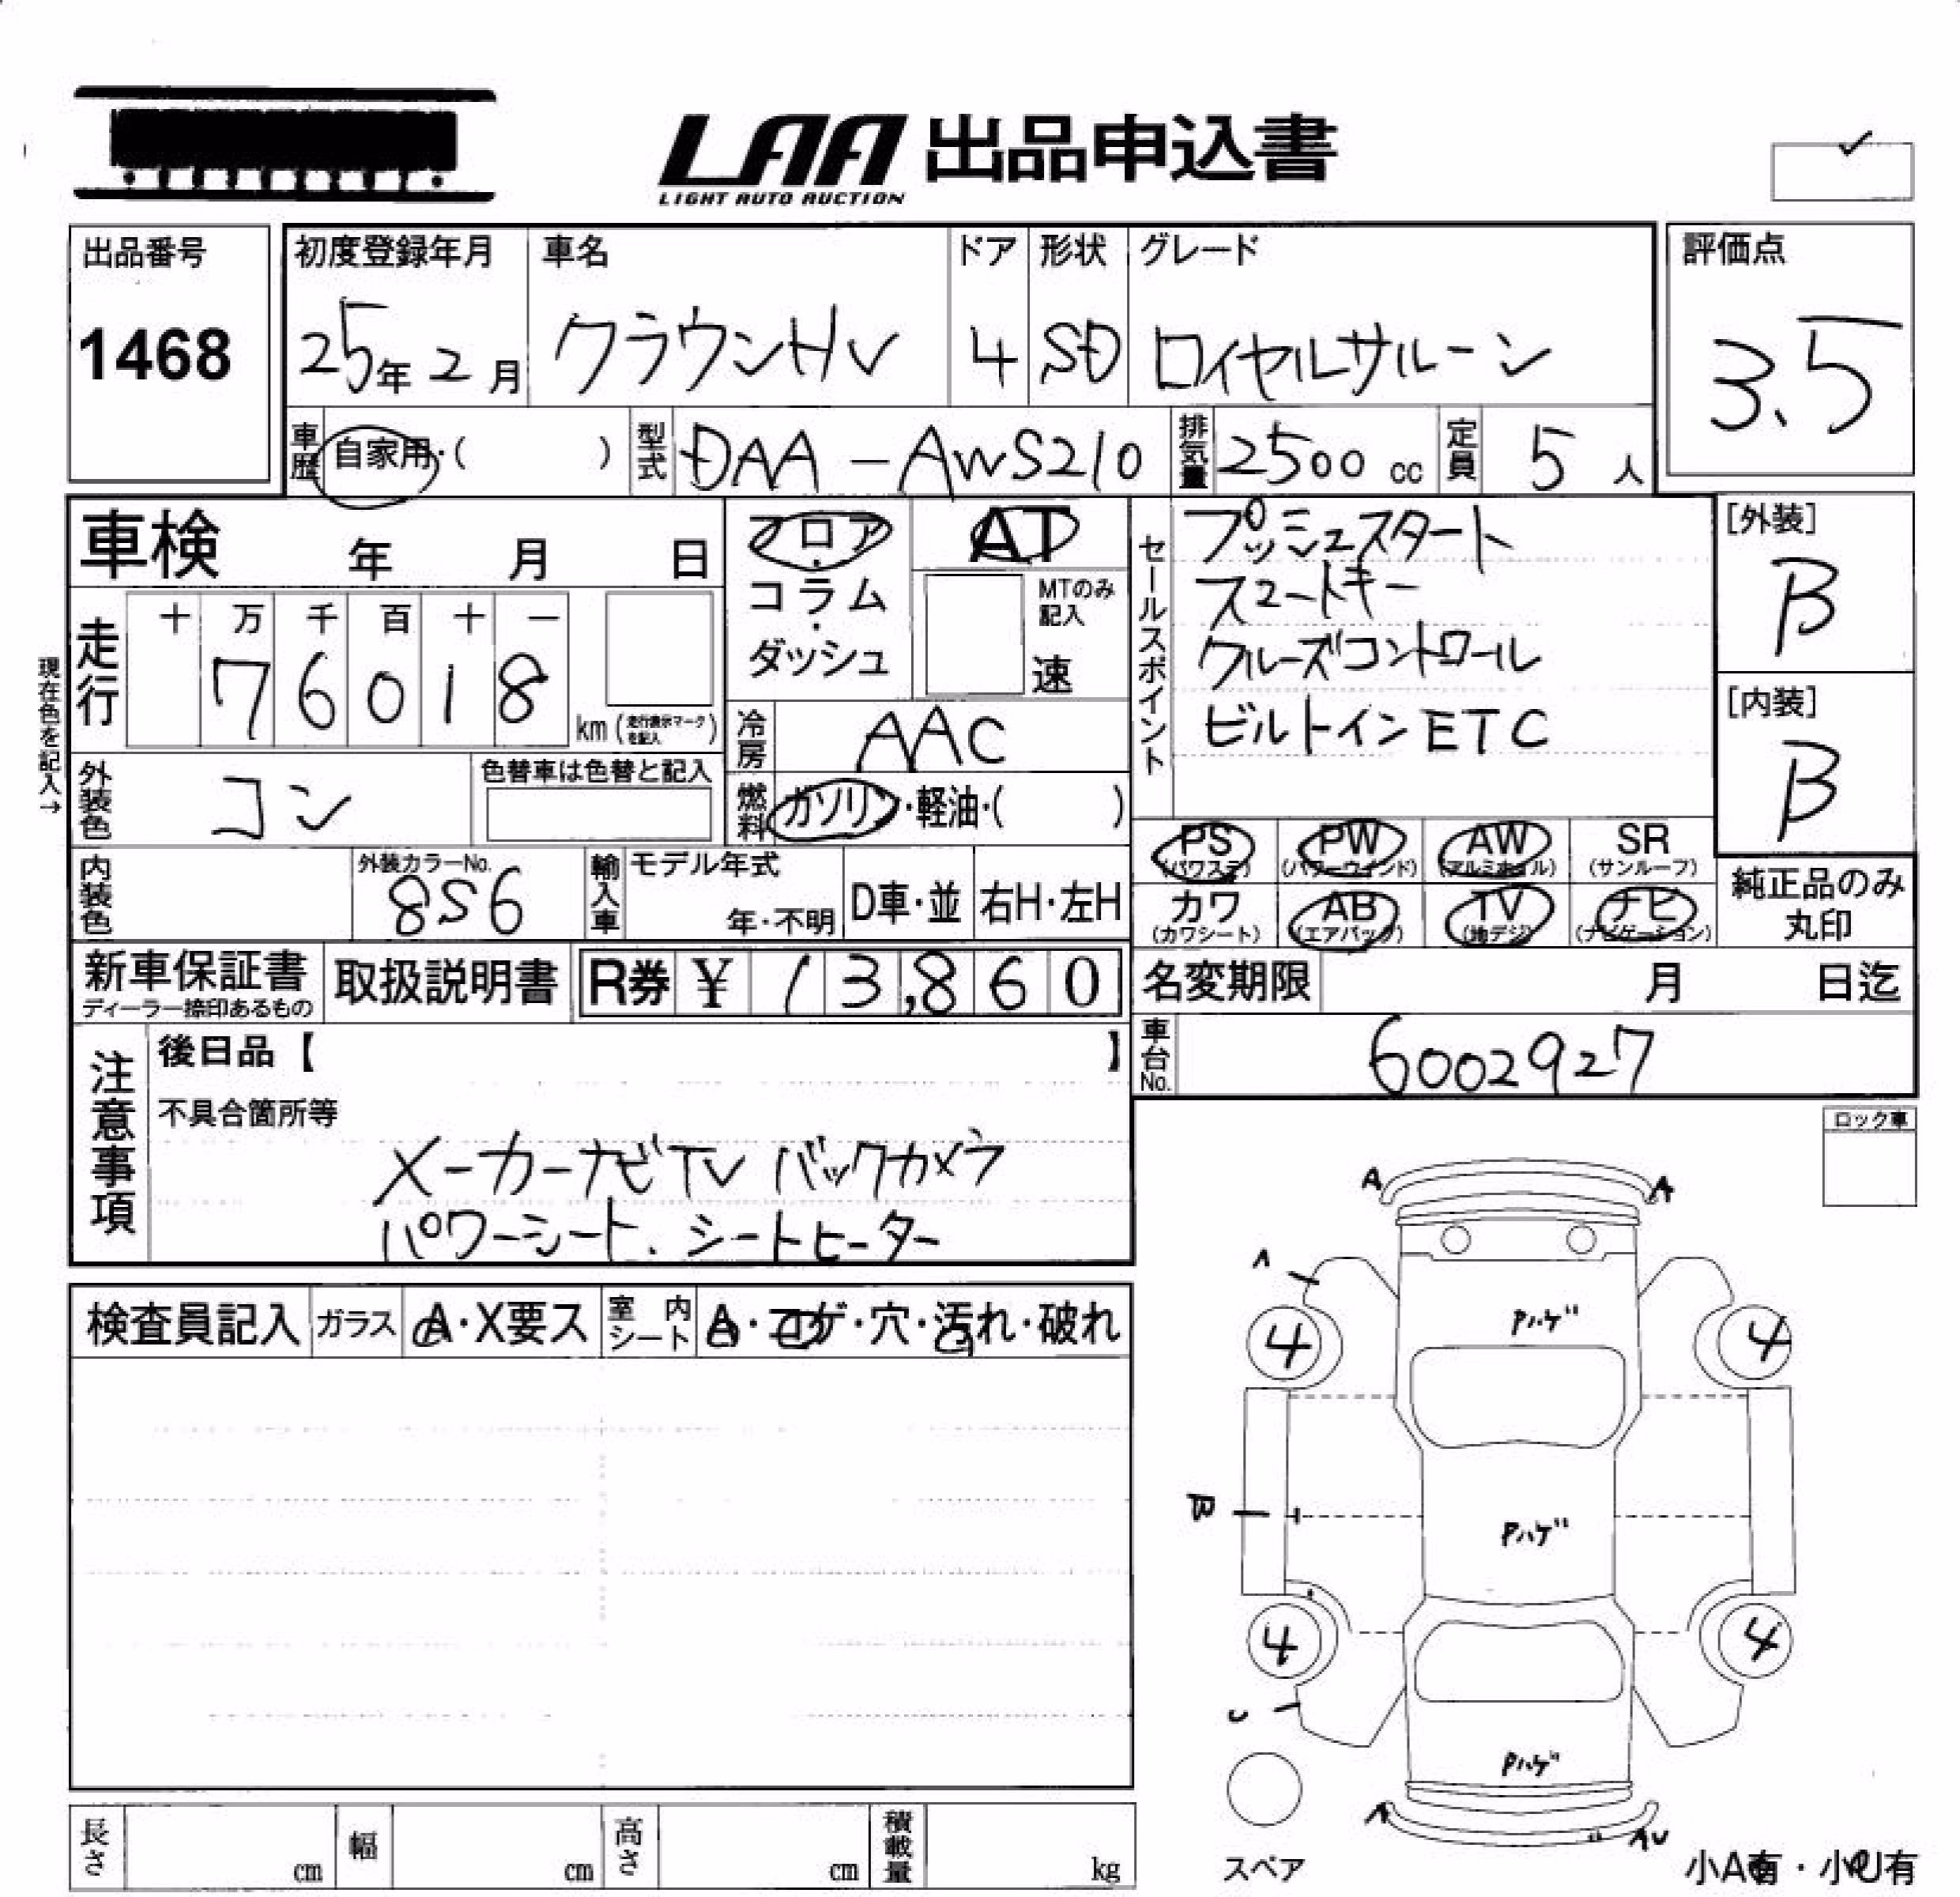 LAA 出品申込書
LIGHT AUTO AUCTION
出品番号
1468
初度登録年月
25年 2月
車名
クラウンHV
ドア
4
形状
SD
グレード
ロイヤルサルーン
評価点
3.5
車歴
自家用・( )
型式
DAA-AWS210
排気量
2500 cc
定員
5 人
車検 年 月 日
フロア
・
コラム
・
ダッシュ
AT
MTのみ
記入
速
セールスポイント
プッシュスタート
スマートキー
クルーズコントロール
ビルトインETC
[外装]
B
[内装]
B
現在色を記入→
走行
十 万 千 百 十 一
7 6 0 1 8
km (走行表示マークを記入)
冷房
AAC
外装色
コン
色替車は色替と記入
燃料
ガソリン・軽油・( )
PS
(パワステ)
PW
(パワーウインド)
AW
(アルミホイル)
SR
(サンルーフ)
カワ
(カワシート)
AB
(エアバッグ)
TV
(地デジ)
ナビ
(ナビゲーション)
純正品のみ
丸印
内装色
外装カラーNo.
8S6
輸入車
モデル年式
年・不明
D車・並
右H・左H
新車保証書
ディーラー捺印あるもの
取扱説明書
R券 ¥ 13,860
名変期限 月 日迄
車台No.
6002927
注意事項
後日品【 】
不具合箇所等
メーカーナビTV バックカメラ
パワーシート、シートヒーター
ロック車
検査員記入
ガラス
A・X要ス
室内
シート
A・コゲ・穴・汚れ・破れ
A
A
Pハゲ
4
4
B
Pハゲ
4
4
U
Pハゲ
AU
スペア
小A有・小U有
長さ cm
幅 cm
高さ cm
積載量 kg